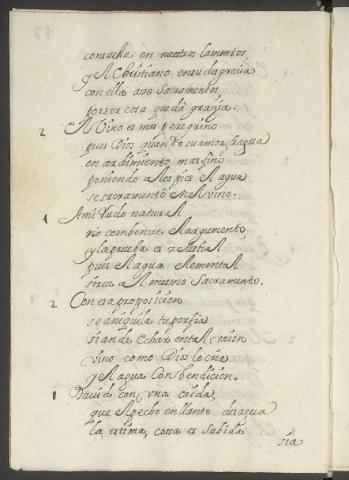 consuella en nuestros lamentos,
y el Christiano en su desgracia
con ella aze Sacramentos,
por ser cosa que da grazia.
2 El Vino es mas peregrino
pues Dios quando su amor fragua
en ardimiento mas fino
poniendo a los pies el agua
se sacramentò en el vino.
1 A mi Vudo natural
no combenze el argumento
y la prueba es zelestial
pues el agua elemental
sirue al mesmo Sacramento.
2 Con esa proposicion
se aniquila tu porfia
si ande echar en tal mion
vino como Dios lo cria
y el agua con bendicion.
1 Dauid con vna caida,
que al pecho en llanto desagua
la estima, cossa es sabida
sia